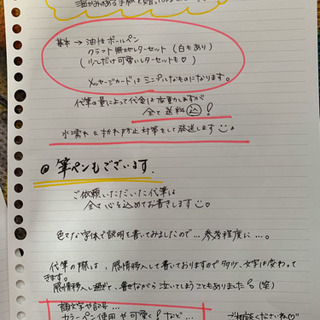 基本 → 油性ボールペン
クラフト無地レターセット (白もあり)
(少しだけ可愛いレターセットも♡)
メッセージカードはミニアルなものになります。
代筆の量によって代金は変動しますが
全て送料込!
水濡れ&折れ防止対策をして発送します
◎筆ペンもございます。
ご依頼いただいた代筆は
全て心を込めてお書きします
色々な字体で説明を書いてみましたので…参考程度に…。
代筆の際は、感情移入して書いておりますので多少、文字は変わって
きます。
感情移入し過ぎて、書きながら泣いてしまうこともあります(笑)
顔文字や記号…
カラーペン使用や可愛く!など…
ご相談ください♡